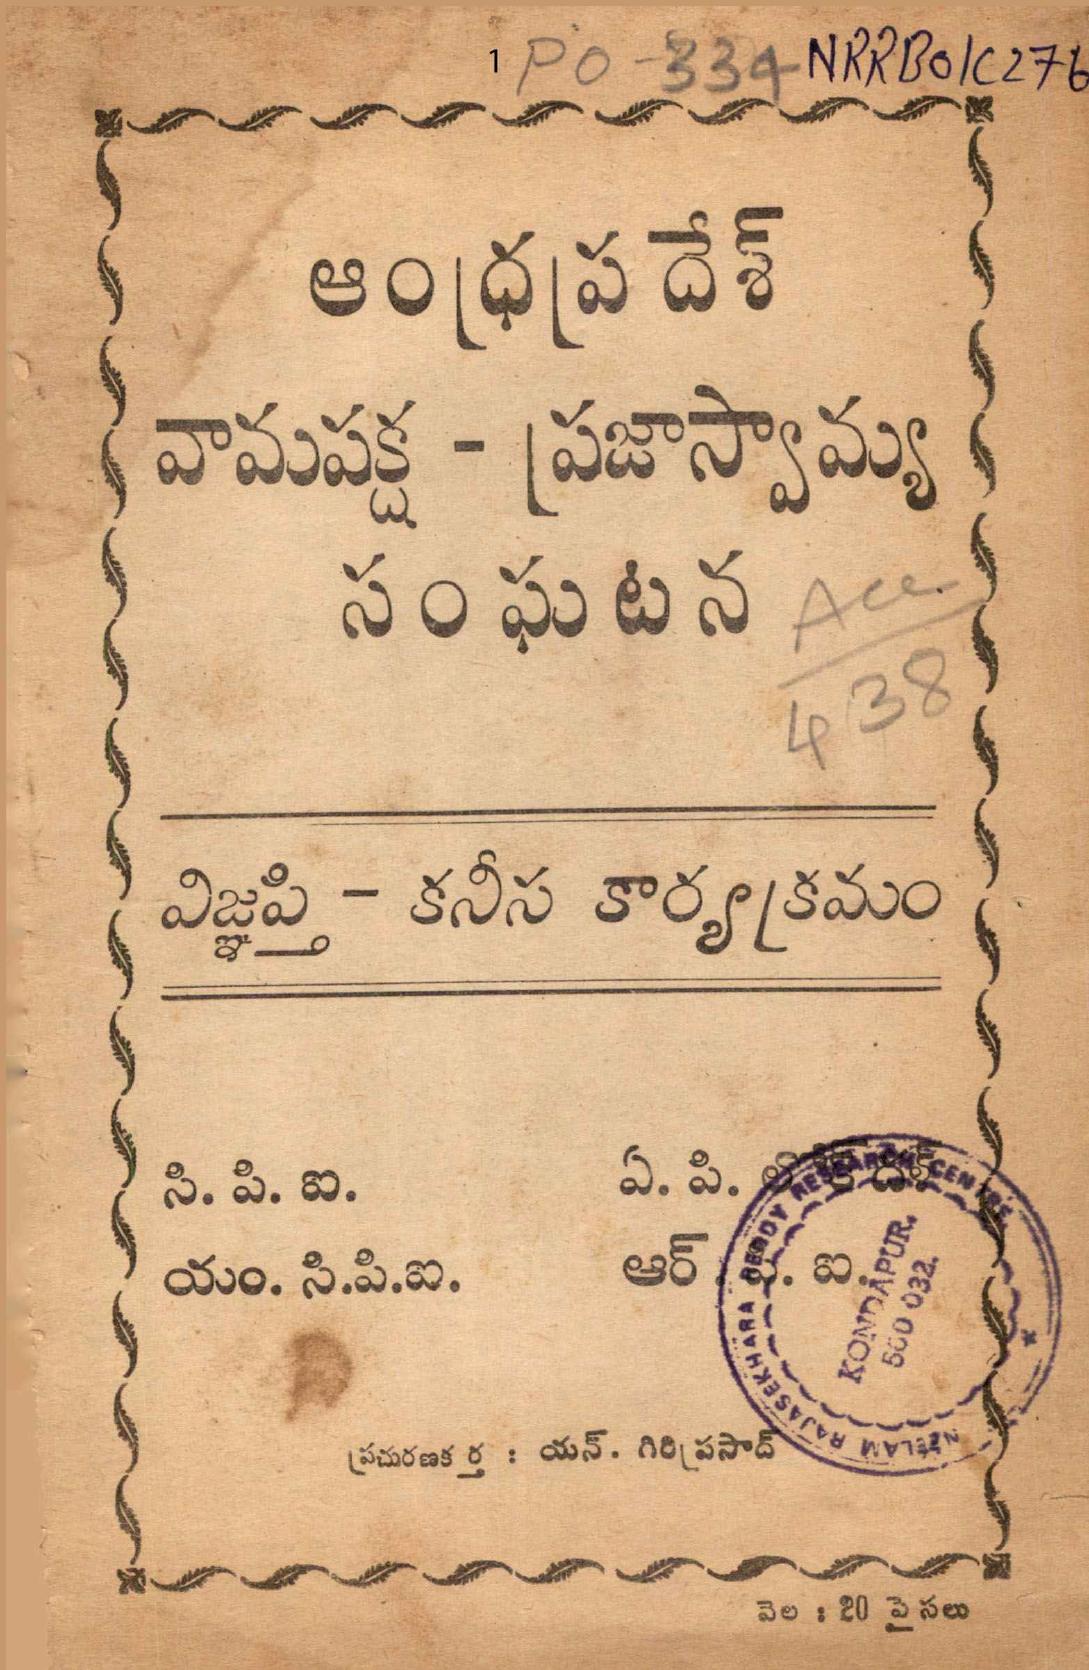 1 PO-334 NRRB01C276
ఆంధ్రప్రదేశ్
వామపక్ష - ప్రజాస్వామ్య
సంఘటన
Acc.
438
విజ్ఞప్తి - కనీస కార్యక్రమం
సి. పి. ఐ. ఏ. పి.
యం. సి.పి.ఐ. ఆర్. పి. ఐ.
NEELAM RAJASEKHARA REDDY RESEARCH CENTRE
KONDAPUR.
500 032.
ప్రచురణకర్త : యన్. గిరిప్రసాద్
వెల : 20 పైసలు